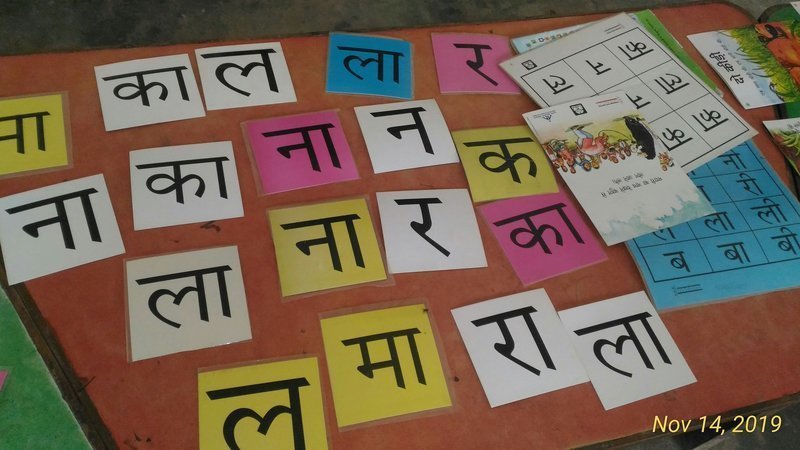 का ल ला र
मा ना न क
ना का ना र का
ला
ल मा रा ला
ला न का
न ला
क का
री
ल ला ली
ब बा बी
Nov 14, 2019